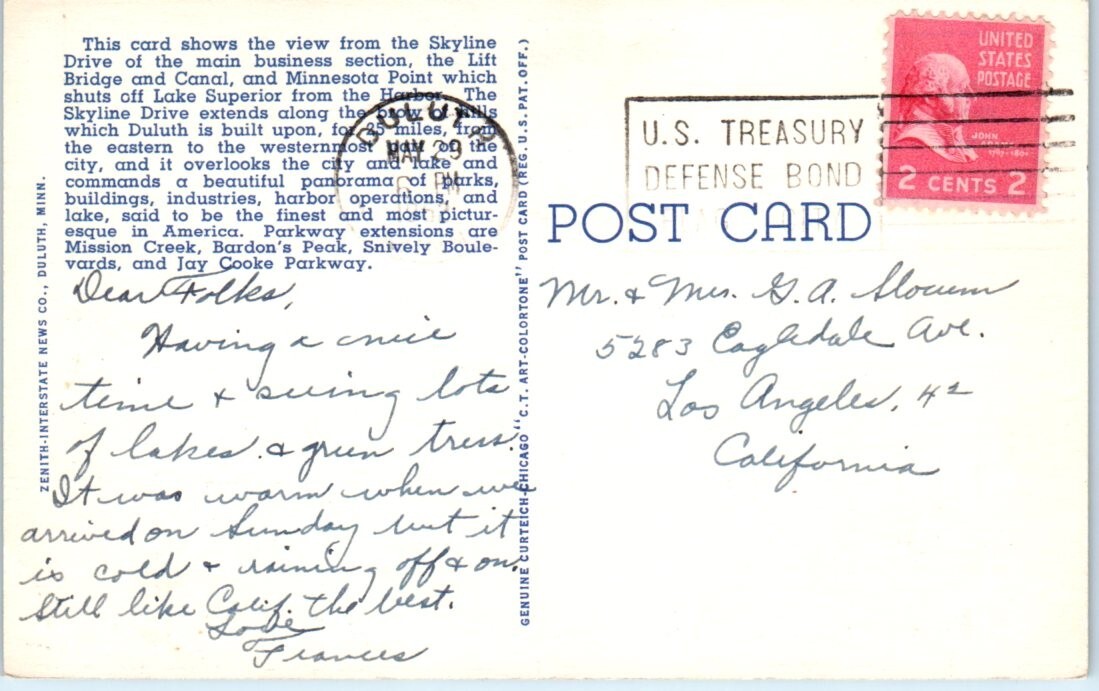 This card shows the view from the Skyline
Drive of the main business section, the Lift
Bridge and Canal, and Minnesota Point which
shuts off Lake Superior from the Harbor. The
Skyline Drive extends along the brow of hills
which Duluth is built upon, for 35 miles, from
the eastern to the westernmost part of the
city, and it overlooks the city and lake and
commands a beautiful panorama of parks,
buildings, industries, harbor operations, and
lake, said to be the finest and most pictur-
esque in America. Parkway extensions are
Mission Creek, Bardon's Peak, Snively Boule-
vards, and Jay Cooke Parkway.
ZENITH-INTERSTATE NEWS CO., DULUTH, MINN.
Dear Folks,
Having a nice
time & seeing lots
of lakes & green trees.
It was warm when we
arrived on Sunday but it
is cold & raining off & on.
Still like Calif. the best.
Love
Frances
GENUINE CURTEICH-CHICAGO "C.T. ART-COLORTONE" POST CARD (REG. U.S. PAT. OFF.)
DULUTH
MAY 29
6 PM
U.S. TREASURY
DEFENSE BOND
UNITED
STATES
POSTAGE
JOHN
2 CENTS 2
POST CARD
Mr. & Mrs. G. A. Slocum
5283 Eagledale Ave.
Los Angeles, 42
California